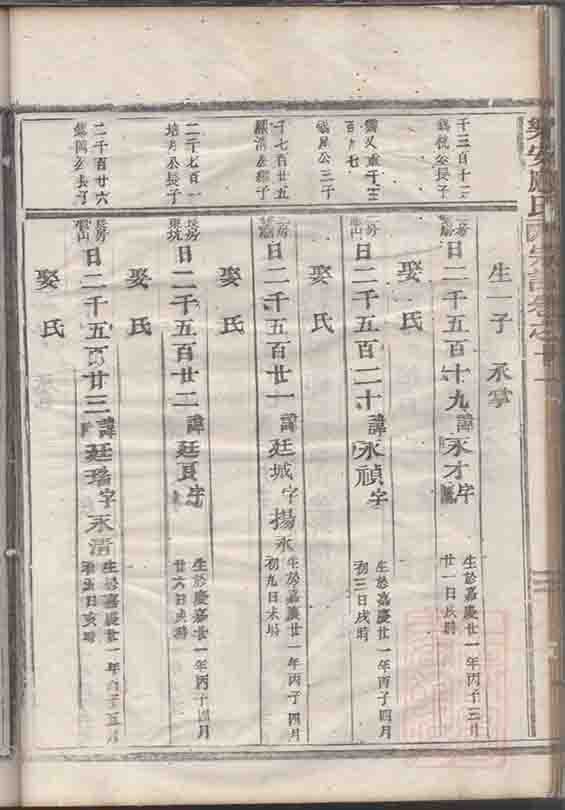 樂安廖氏
生一子 永掌
千三百十二
公長子
二房
日二千五百十九諱永才字
生於嘉慶廿一年丙子三月
廿一日戌時
娶氏
公三子
二房
日二千五百二十諱永禎字
生於嘉慶廿一年丙子四月
初三日戌時
娶氏
千七百廿五
房
日二千五百廿一諱廷城字揚永
生於嘉慶廿一年丙子四月
初九日未時
娶氏
二千七百一
培月公長子
長房
東坑
日二千五百廿二諱廷良字
生於慶嘉廿一年丙子四月
廿六日亥時
娶氏
二千百廿六
公長子
長房
日二千五百廿三諱廷瑞字永清
生於嘉慶廿一年
日亥時
娶氏